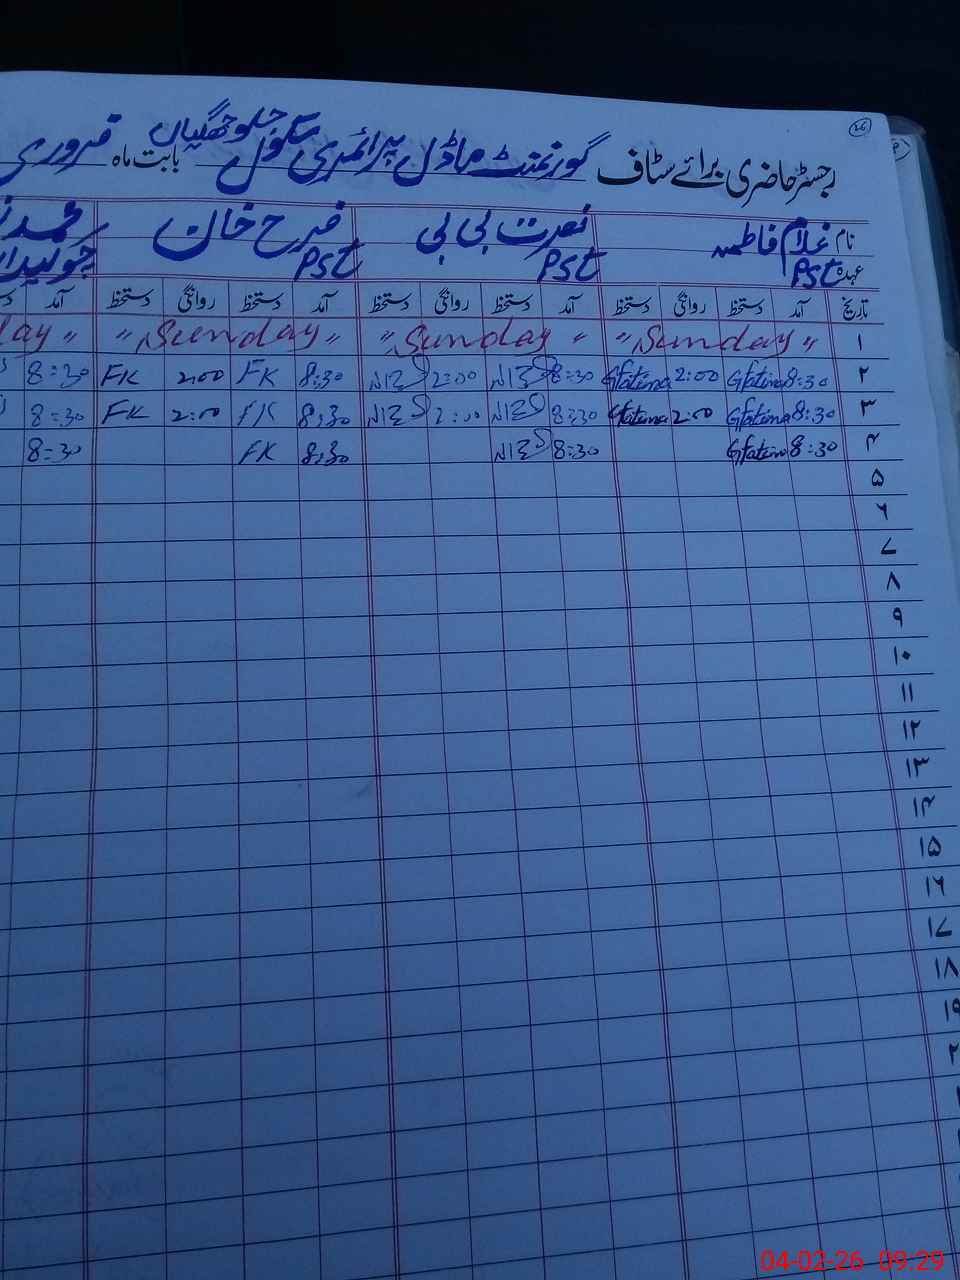 26
رجسٹر حاضری برائے سٹاف گورنمنٹ ماڈل پرائمری سکول جلو جھگیاں بابت ماہ فروری
نام غلام فاطمہ نصرت بی بی فرح خان محمد
عہدہ Pst Pst Pst چوکیدار
تاریخ آمد دستخط روانگی دستخط آمد دستخط روانگی دستخط آمد دستخط روانگی دستخط آمد
۱ "Sunday" "Sunday" "Sunday" day"
۲ 8:30 Gfatima 2:00 Gfatima 8:30 2:00 8:30 FK 2:00 FK 8:30
۳ 8:30 Gfatima 2:00 Gfatima 8:30 2:00 8:30 FK 2:00 FK 8:30
۴ 8:30 Gfatima 8:30 8:30 FK 8:30
۵
۶
۷
۸
۹
۱۰
۱۱
۱۲
۱۳
۱۴
۱۵
۱۶
۱۷
۱۸
۱۹
04-02-26 09:29